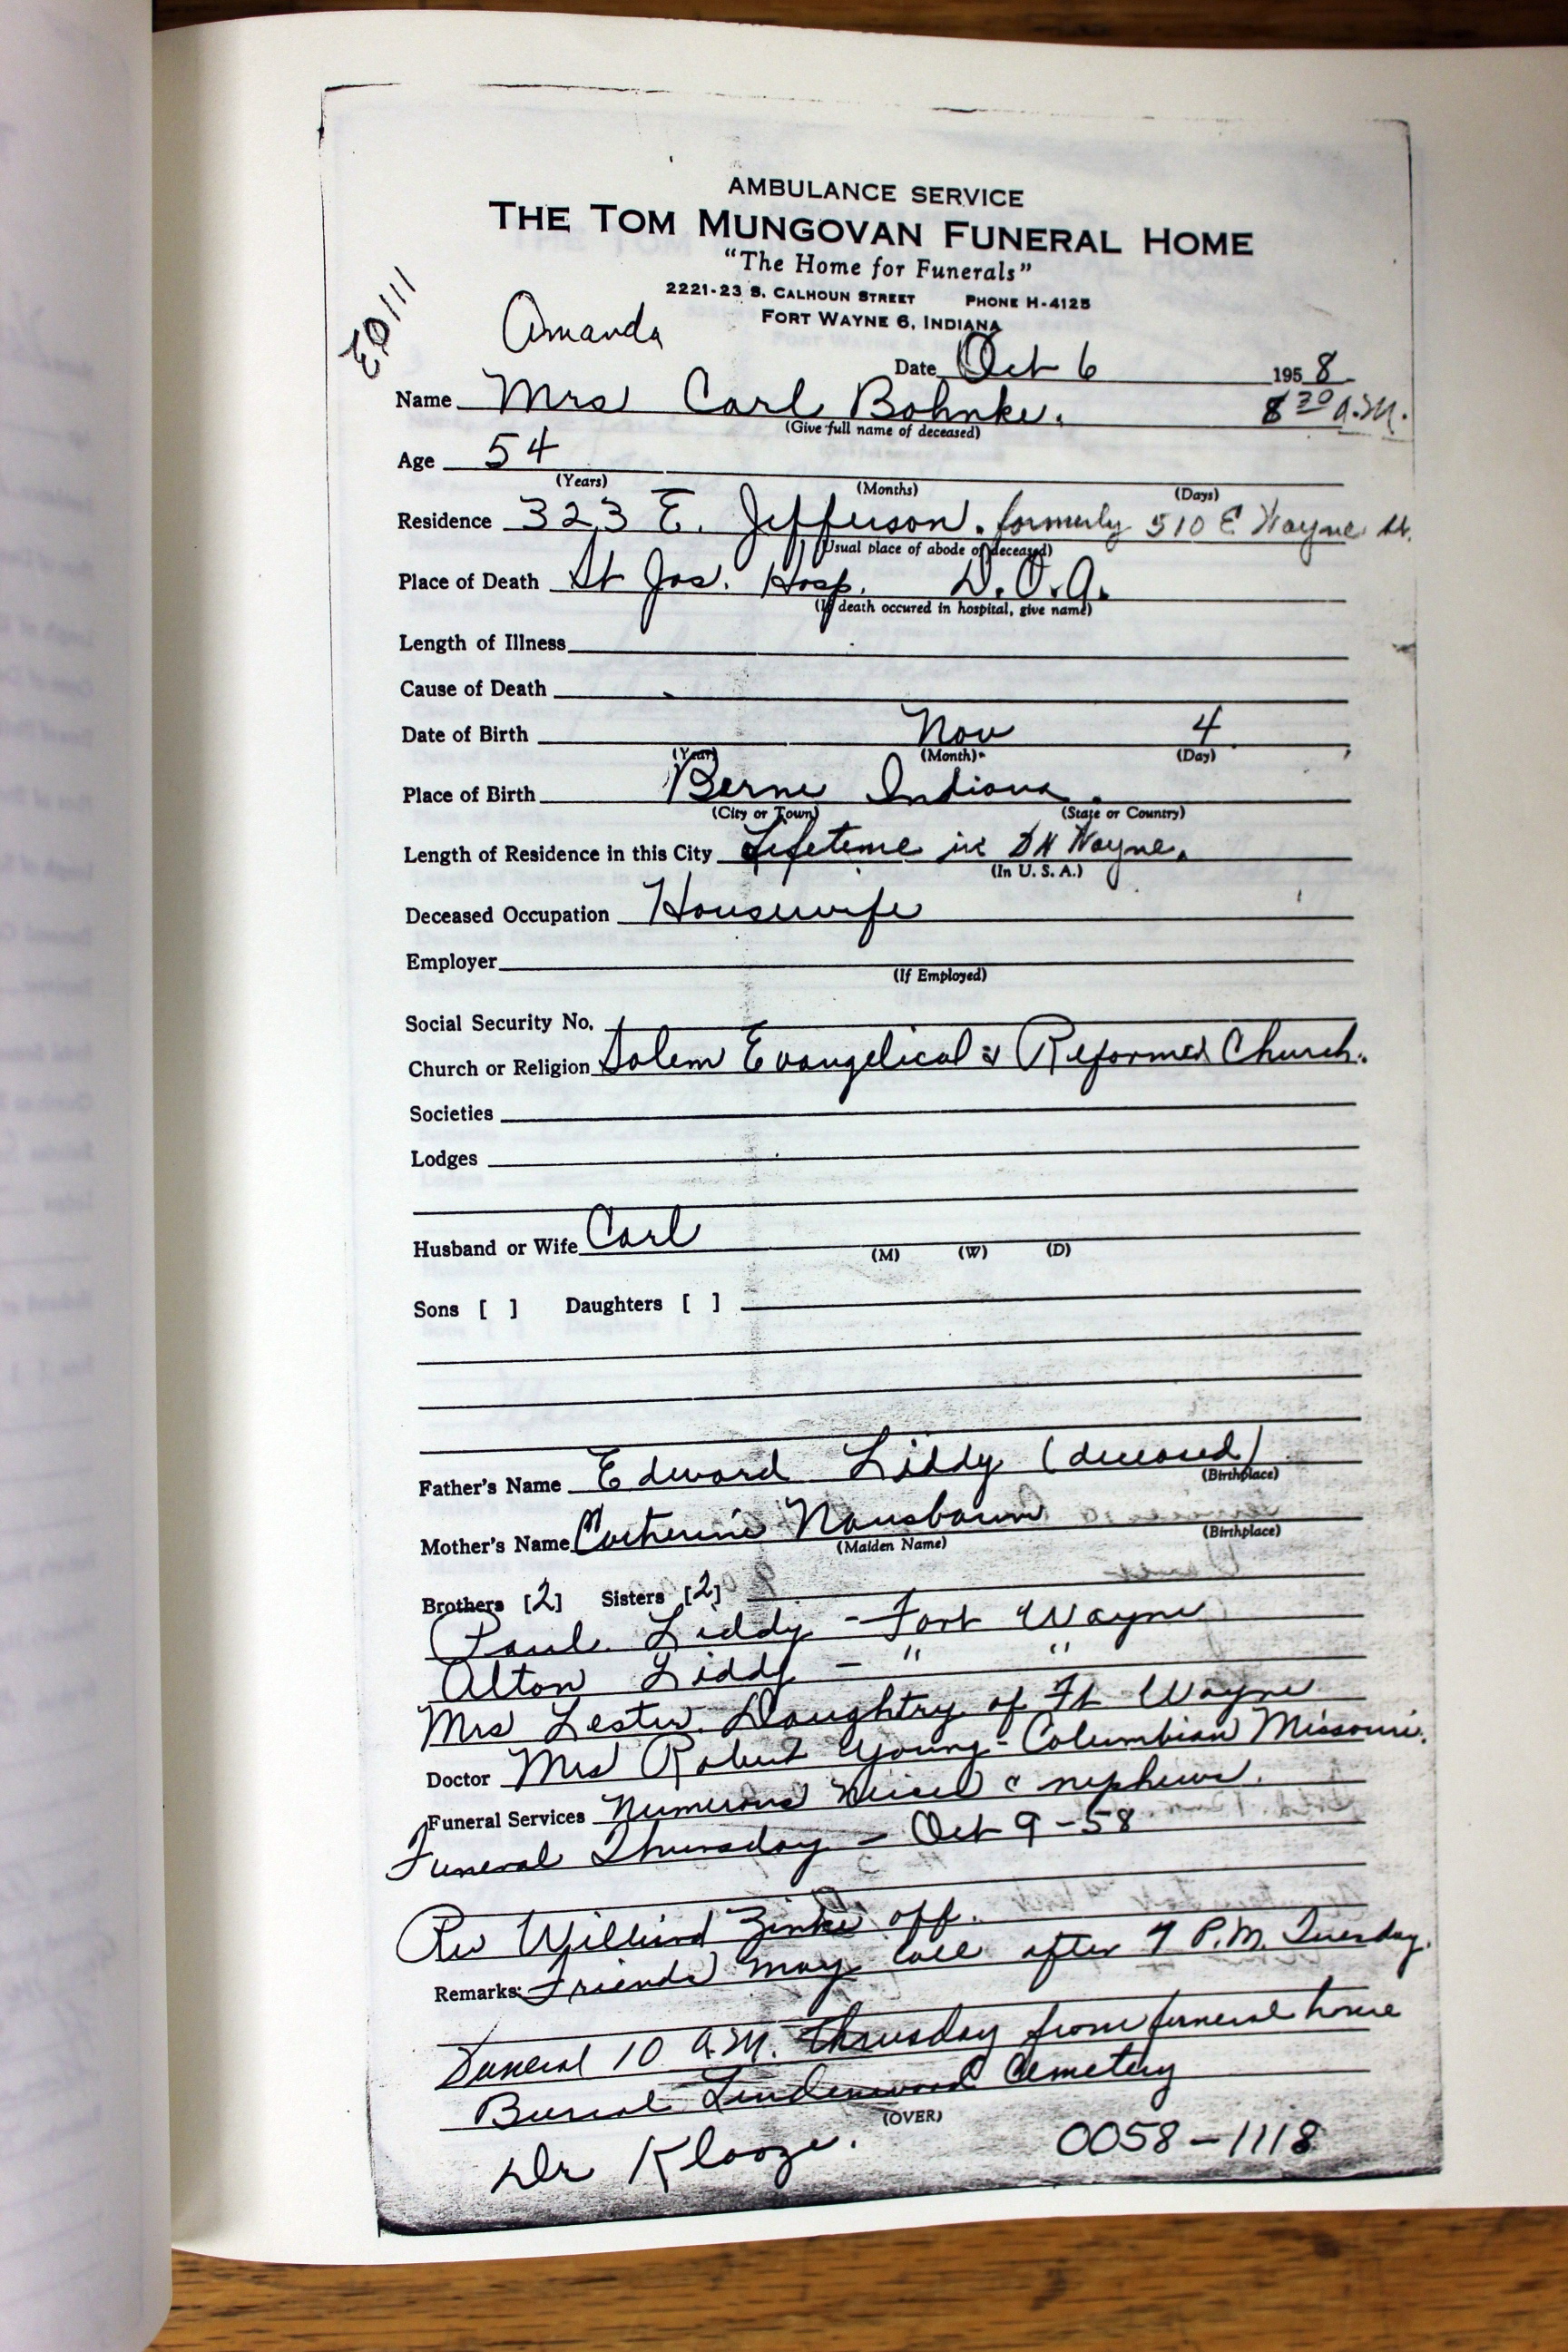 AMBULANCE SERVICE
THE TOM MUNGOVAN FUNERAL HOME
"The Home for Funerals"
2221-23 S. CALHOUN STREET PHONE H-4125
FORT WAYNE 6, INDIANA
Amanda
Date Oct 6 1958
Name Mrs Carl Bohnke. 8 30 a.m.
(Give full name of deceased)
Age 54
(Years) (Months) (Days)
Residence 323 E. Jefferson. formerly 510 E Wayne St.
(Usual place of abode of deceased)
Place of Death St Jos. Hosp. D.O.A.
(If death occured in hospital, give name)
Length of Illness
Cause of Death
Date of Birth Nov 4
(Year) (Month) (Day)
Place of Birth Berne Indiana.
(City or Town) (State or Country)
Length of Residence in this City Lifetime in Ft Wayne.
(In U. S. A.)
Deceased Occupation Housewife
Employer
(If Employed)
Social Security No.
Church or Religion Salem Evangelical & Reformed Church.
Societies
Lodges
Husband or Wife Carl
(M) (W) (D)
Sons [ ] Daughters [ ]
Father's Name Edward Liddy (deceased)
(Birthplace)
Mother's Name Catherine Nausbaum
(Maiden Name) (Birthplace)
Brothers [2] Sisters [2]
Paul Liddy - Fort Wayne
Alton Liddy - " "
Mrs Lester Daughtry of Ft Wayne
Doctor Mrs Robert Young - Columbian Missouri.
Funeral Services Numerous Nieces & nephews.
Funeral Thursday - Oct 9-58
Rev Zinke off.
Remarks: Friends may call after 7 P.M. Tuesday.
Funeral 10 a.m. Thursday from funeral home
Burial Lindenwood Cemetery
(OVER)
Dr 0058-1118